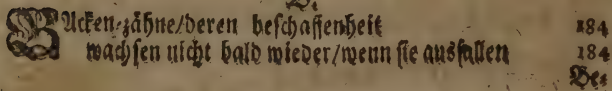 BAcken-zähne/deren beschaffenheit 184
wachsen nicht bald wieder/wenn sie ausfallen 184
Be-